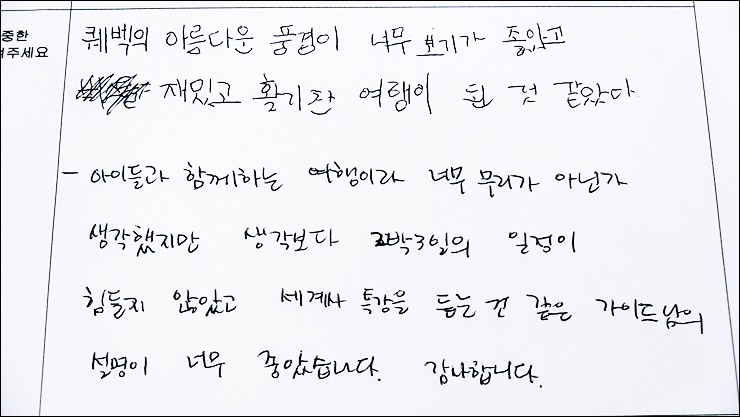 중한
겨주세요
퀘벡의 아름다운 풍경이 너무 보기가 좋았고
재밌고 활기찬 여행이 된 것 같았다
- 아이들과 함께하는 여행이라 너무 무리가 아닌가
생각했지만 생각보다 2박3일의 일정이
힘들지 않았고 세계사 특강을 듣는 건 같은 가이드님의
설명이 너무 좋았습니다. 감사합니다.